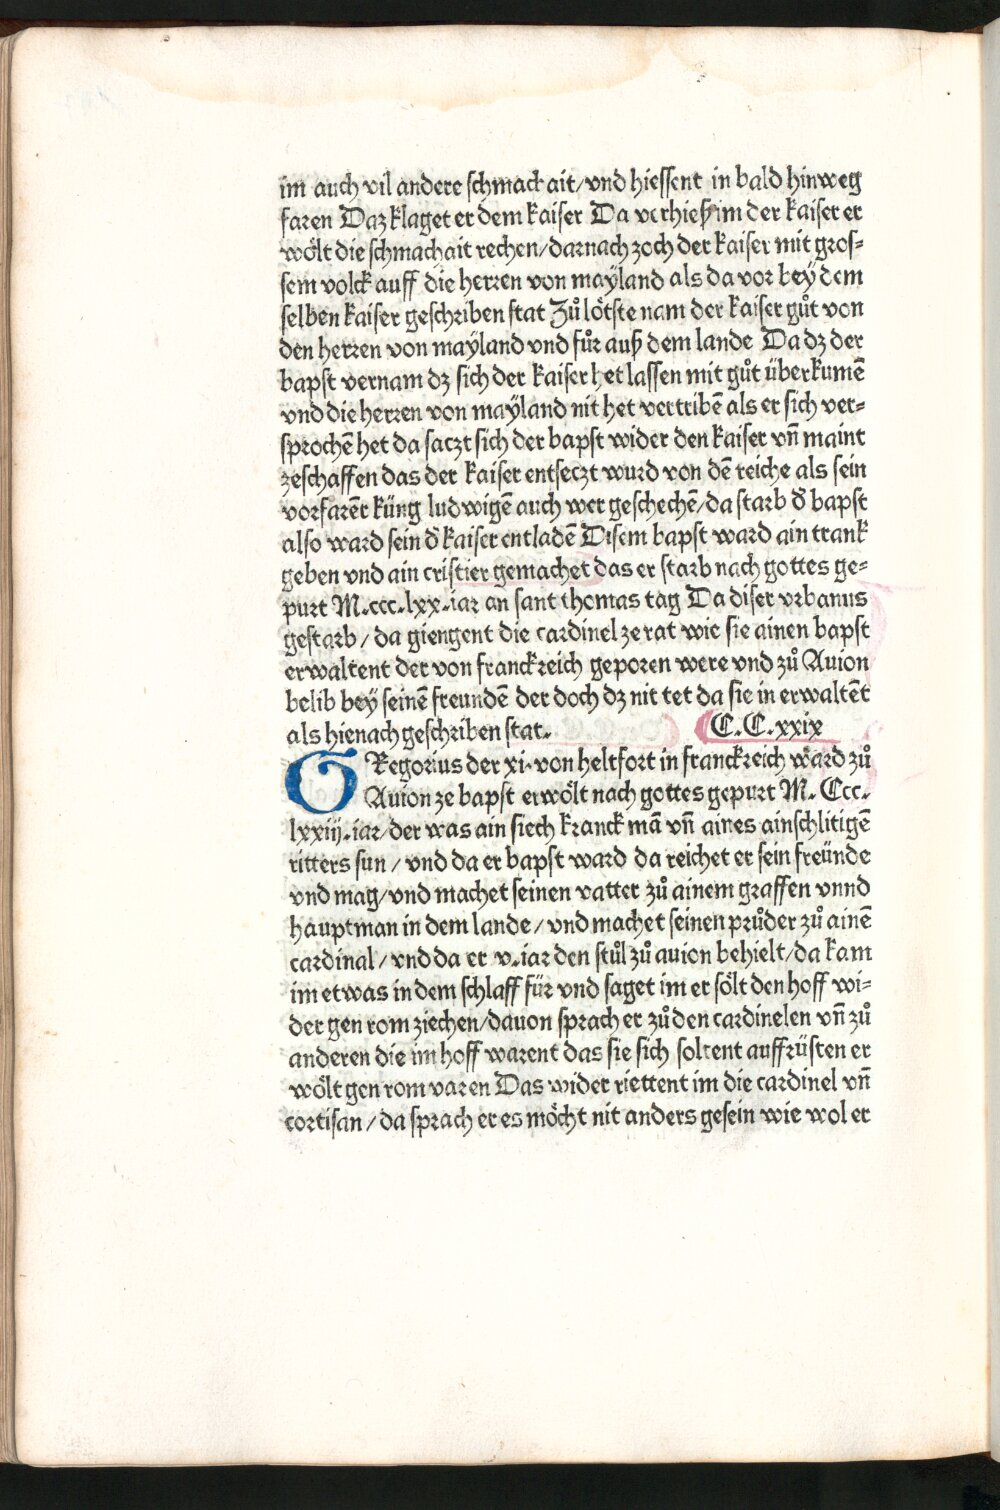 im auch vil andere schmachait/vnd hiessent in bald hinweg
faren Daz klaget er dem kaiser Da verhieß im der kaiser er
wölt die schmachait rechen/darnach zoch der kaiser mit gros⸗
sem volck auff die herren von mayland als da vor bey dem
selben kaiser geschriben stat Zuͦ lötste nam der kaiser guͦt von
den herren von maÿland vnd fuͦr auß dem lande Da dz der
bapst vernam dz sich der kaiser het lassen mit guͦt überkumē
vnd die herren von maÿland nit het vertribē als er sich ver⸗
sprochē het da saczt sich der bapst wider den kaiser vn̄ maint
zeschaffen das der kaiser entseczt wurd von dē reiche als sein
vorfarēr küng ludwigē auch wer geschechē/da starb d̄ bapst
also ward sein d̄ kaiser entladē Disem bapst ward ain trank
geben vnd ain cristier gemachet das er starb nach gottes ge⸗
purt M.ccc.lxx.iar an sant thomas tag Da diser vrbanus
gestarb/da giengent die cardinel ze rat wie sie ainen bapst
erwaltent der von franckreich geporen were vnd zuͦ Auion
belib beÿ seinē freundē der doch dz nit tet da sie in erwaltēt
als hienach geschriben stat. C.C.xxix
GRegorius der xi.von heltfort in franckreich ward zuͦ
Auion ze bapst erwölt nach gottes gepurt M.Ccc.
lxxiij.iar/der was ain siech kranck mā vn̄ aines ainschlitigē
ritters sun/vnd da er bapst ward da reichet er sein freünde
vnd mag/vnd machet seinen vatter zuͦ ainem graffen vnnd
hauptman in dem lande/vnd machet seinen pruͦder zuͦ ainē
cardinal/vnd da er v.iar den stuͦl zuͦ auion behielt/da kam
im etwas in dem schlaff für vnd saget im er sölt den hoff wi⸗
der gen rom ziechen/dauon sprach er zuͦ den cardinelen vn̄ zuͦ
anderen die im hoff warent das sie sich soltent auffrüsten er
wölt gen rom varen Das wider riettent im die cardinel vn̄
cortisan/da sprach er es möcht nit anders gesein wie wol er